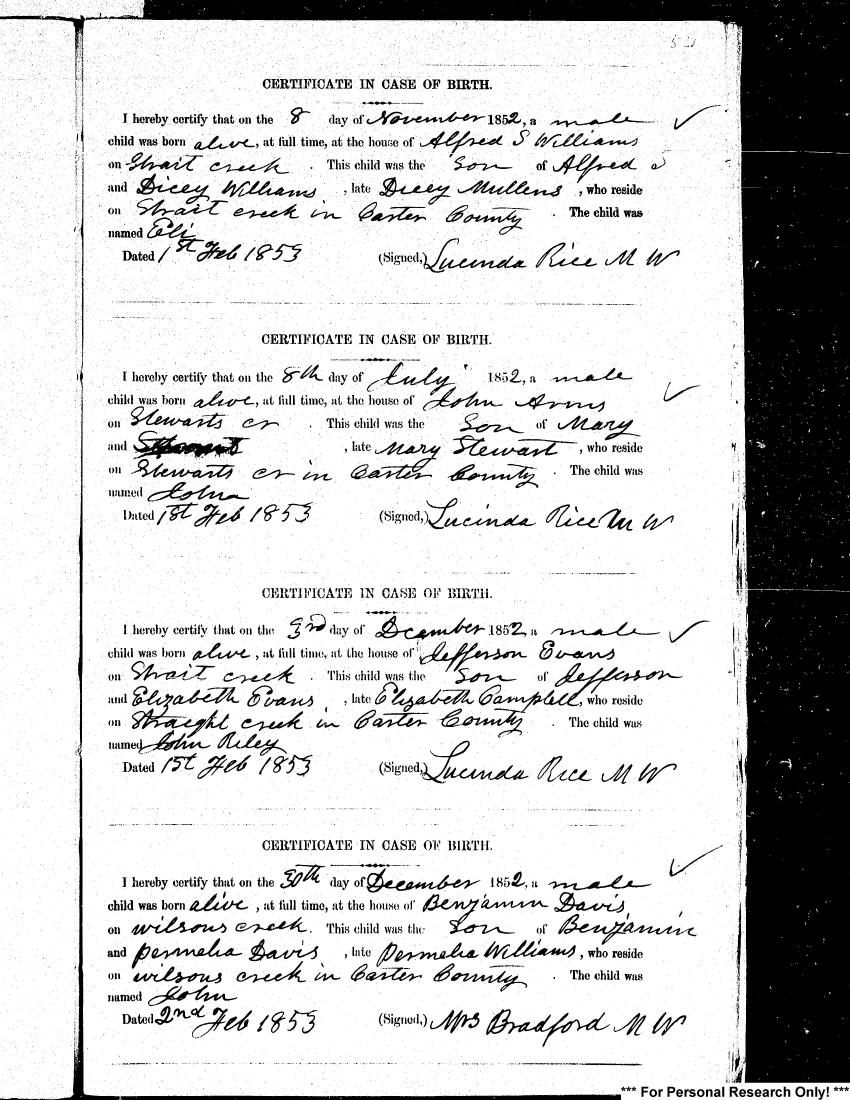 CERTIFICATE IN CASE OF BIRTH.
I hereby certify that on the 8 day of November 1852, a male
child was born alive, at full time, at the house of Alfred S Williams
on Strait creek. This child was the Son of Alfred S
and Dicey Williams, late Dicey Mullens, who reside
on Strait creek in Carter County. The child was
named Eli
Dated 1st Feb 1853 (Signed,) Lucinda Rice M W
CERTIFICATE IN CASE OF BIRTH.
I hereby certify that on the 8th day of July 1852, a male
child was born alive, at full time, at the house of John Arms
on Stewarts cr. This child was the Son of Mary
and , late Mary Stewart, who reside
on Stewarts cr in Carter County. The child was
named John
Dated 1st Feb 1853 (Signed,) Lucinda Rice M W
CERTIFICATE IN CASE OF BIRTH.
I hereby certify that on the 3rd day of December 1852, a male
child was born alive, at full time, at the house of Jefferson Evans
on Strait creek. This child was the Son of Jefferson
and Elizabeth Evans, late Elizabeth Campbell, who reside
on Straight creek in Carter County. The child was
named John Riley
Dated 1st Feb 1853 (Signed,) Lucinda Rice M W
CERTIFICATE IN CASE OF BIRTH.
I hereby certify that on the 30th day of December 1852, a male
child was born alive, at full time, at the house of Benjamin Davis
on wilsons creek. This child was the Son of Benjamin
and permelia Davis, late Permelia Williams, who reside
on wilsons creek in Carter County. The child was
named John
Dated 2nd Feb 1853 (Signed,) Mrs Bradford M W
*** For Personal Research Only! ***